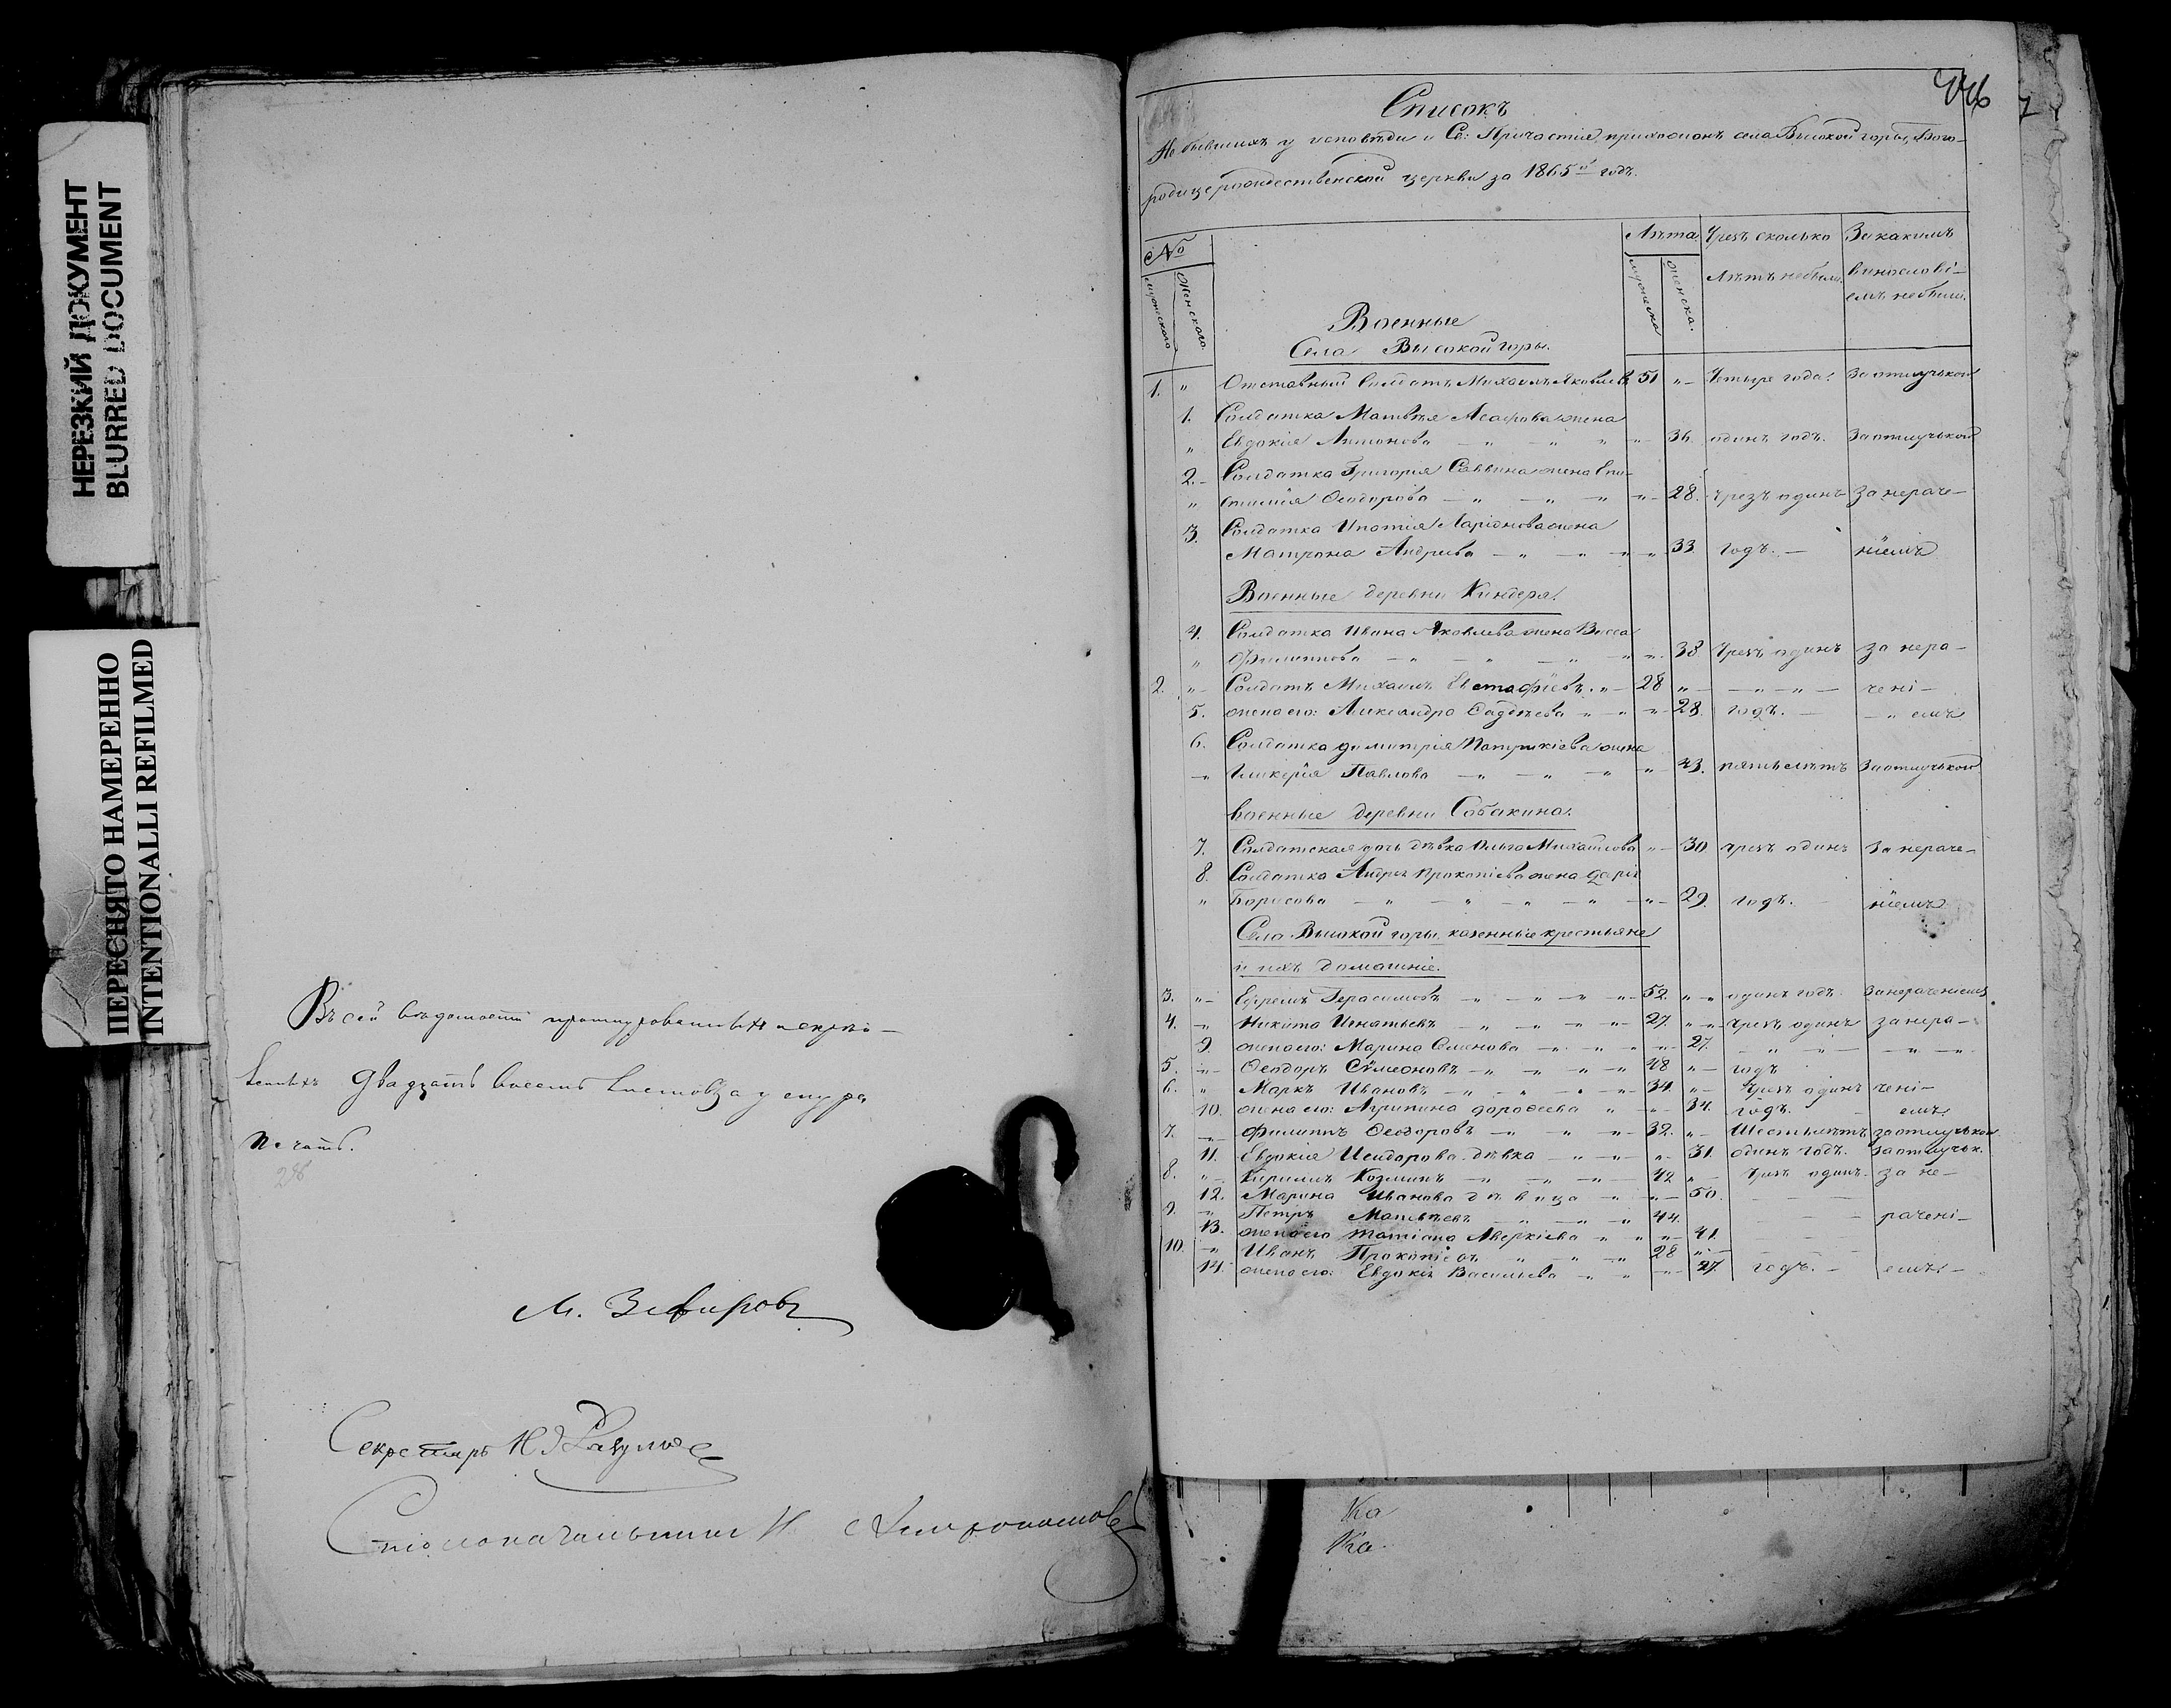 НЕРЕЗКИЙ ДОКУМЕНТ
BLURRED DOCUMENT
ПЕРЕСНЯТО НАМЕРЕННО
INTENTIONALLI REFILMED
Въ сей вѣдомости пронумерованныхъ и скрѣп-
ленныхъ двадцать восемь листовъ за у сего
печать.
28
М. Зефировъ
Секретарь Н
Столоначальникъ И
446
7
Списокъ
Не бывшихъ у исповѣди и Св: Причастія, прихожанъ села Высокой горы, Бого-
родицерождественской церкви за 1865й годъ.
№
мужескаго
женскаго.
Лѣта
мужеска
женска.
Чрезъ сколько
лѣтъ небыли.
За какимъ
винословi-
емъ небыли.
Военные
Села Высокой горы.
1. " Отставный солдатъ Михаилъ Яковлевъ 51 " Четыре года. За отлучкой
1. Солдатка Матвѣя Асафова жена
" Евдокія Антонова " " " " 36. одинъ годъ. За отлучкой
2. Солдатка Григорія Саввина жена Епи-
" стимія Ѳеодорова " " " " 28. чрезъ одинъ за нераче-
3. Солдатка Ипатія Ларіонова жена
Матрона Андреева " " " " 33. годъ. ніемъ
Военные деревни Киндеря.
4. Солдатка Ивана Яковлева жена Васса
" Филиппова " " " " " 38 Чрезъ одинъ за нера-
2. " Солдатъ Михаилъ Евстафіевъ. " 28 " " " чені-
5. жена его: Александра Фаддѣева " " " 28. годъ. " емъ
6. Солдатка Димитрія Патрикіева жена
" Гликерія Павлова " " " " 43. пять лѣтъ За отлучкой
Военные деревни Собакина.
7. Солдатская дочь дѣвка Ольга Михайлова " 30 чрезъ одинъ За нераче-
8. Солдатка Андрея Прокопіева жена Дарія
" Борисова " " " " " 29. годъ. ніемъ
Села Высокой горы, казенные крестьяне
и ихъ домашніе.
3. " Ефремъ Герасимовъ " " " " 52. " " одинъ годъ. За нераченіемъ
4. " Никита Игнатьевъ " " " " 27. " " Чрезъ одинъ за нера-
9. жена его: Марина Семенова " " " " 27. " " " "
5. " Ѳеодоръ Сѵмеоновъ " " " " 48 " годъ
6. " Маркъ Ивановъ " " " " 34. " Чрезъ одинъ чені-
10. жена его: Агрипина Дороѳеева " " 34. годъ. емъ.
7. " Филиппъ Ѳеодоровъ " " " 32. " Шесть лѣтъ за отлучкой
11. Евдокія Исидорова дѣвка " " " 31. одинъ годъ. За отлучк.
8. " Кириллъ Козминъ " " " " 42 " Чрезъ одинъ. за не-
12. Марина Иванова дѣвица " " 50.
9. " Петръ Матвѣевъ " " " 44. рачені-
13. жена его Татіана Аверкіева " " " 41.
10. " Иванъ Прокопіевъ " " " 28 "
14. жена его: Евдокія Васильева " " " 27. годъ. емъ.
Ка
Ка